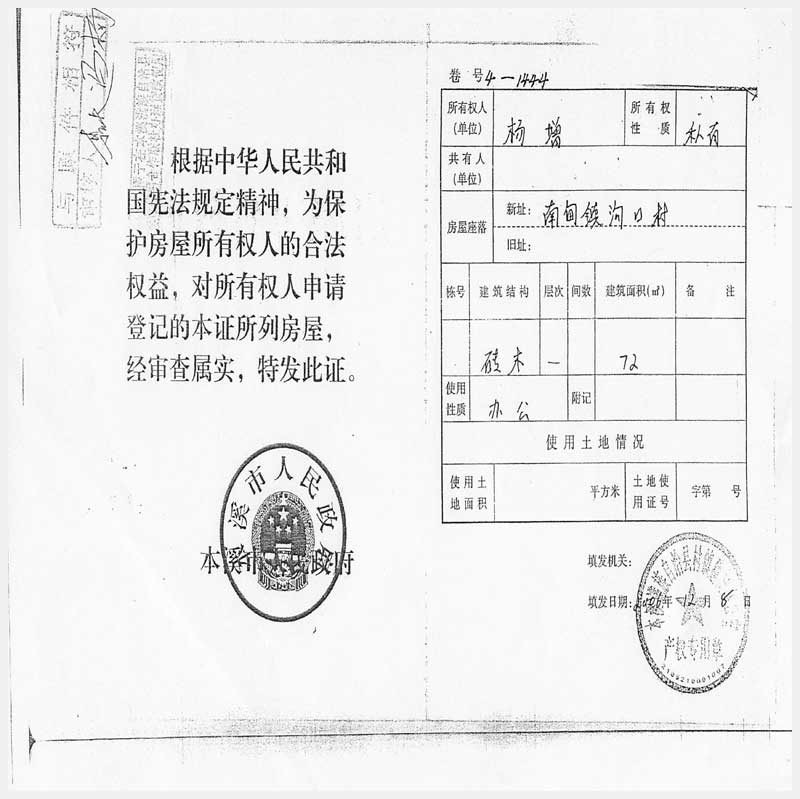 与原件相符
根据中华人民共和
国宪法规定精神，为保
护房屋所有权人的合法
权益，对所有权人申请
登记的本证所列房屋，
经审查属实，特发此证。
本溪市人民政府
本溪市人民政府
卷号4-1444
所有权人（单位） 杨增 所有权性质 私有
共有人（单位）
房屋座落 新址：南甸镇沟口村
旧址：
栋号 建筑结构 层次 间数 建筑面积(㎡) 备注
砖木 一 72
使用性质 办公 附记
使用土地情况
使用土地面积 平方米 土地使用证号 字第 号
填发机关：
填发日期：2006年12月8日
产权专用章